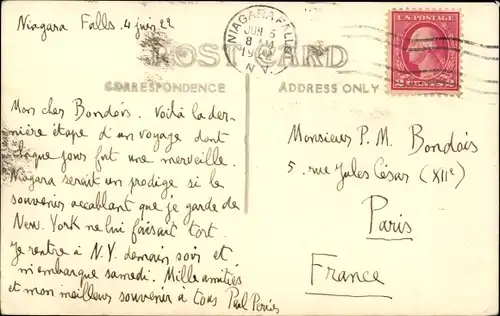 Niagara Falls. 4 juin 22
NIAGARA FALLS
JUN 5
8 M
19
N.Y.
U.S. POSTAGE
2 CENTS 2
POST CARD
CORRESPONDENCE
ADDRESS ONLY
Mon cher Bondois. Voilà la der-
nière étape d'un voyage dont
chaque jour fut une merveille.
Niagara serait un prodige si le
souvenir accablant que je garde de
New. York ne lui faisait tort.
Je rentre à N.Y. demain soir et
m'embarque samedi. Mille amitiés
et mon meilleur souvenir à tous Paul
Monsieur P. M. Bondois
5, rue Jules César (XIIe)
Paris
France